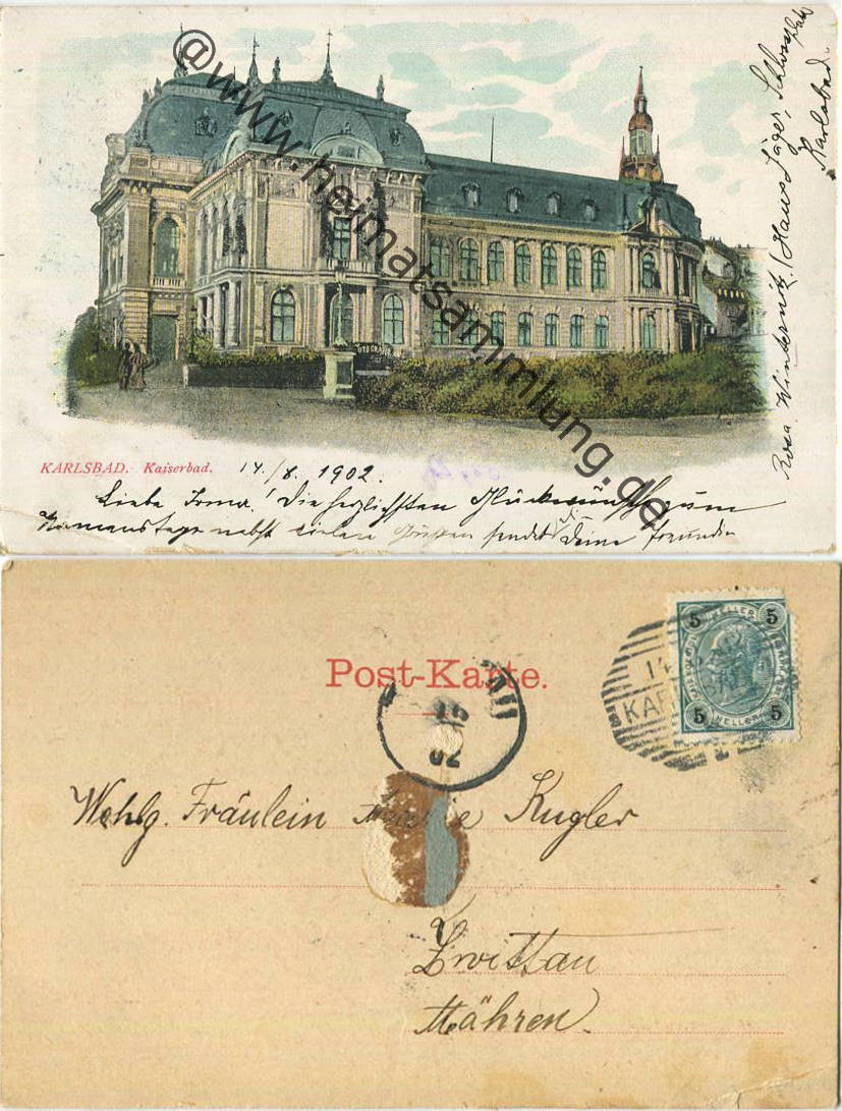 @www.heimatsammlung.de
Rosa Winternitz (Haus Jäger, Schlossplatz
Karlsbad.
KARLSBAD. Kaiserbad. 14./8. 1902.
Liebe Irma! Die herzlichsten Glückwünsche zum
Namenstage nebst vielen Grüßen sendet Dir Deine Freundin
Post-Karte.
5 HELLER 5
5 HELLER 5
14
KAR
AU
15
02
Wohlg. Fräulein Kugler
Zwittau
Mähren.